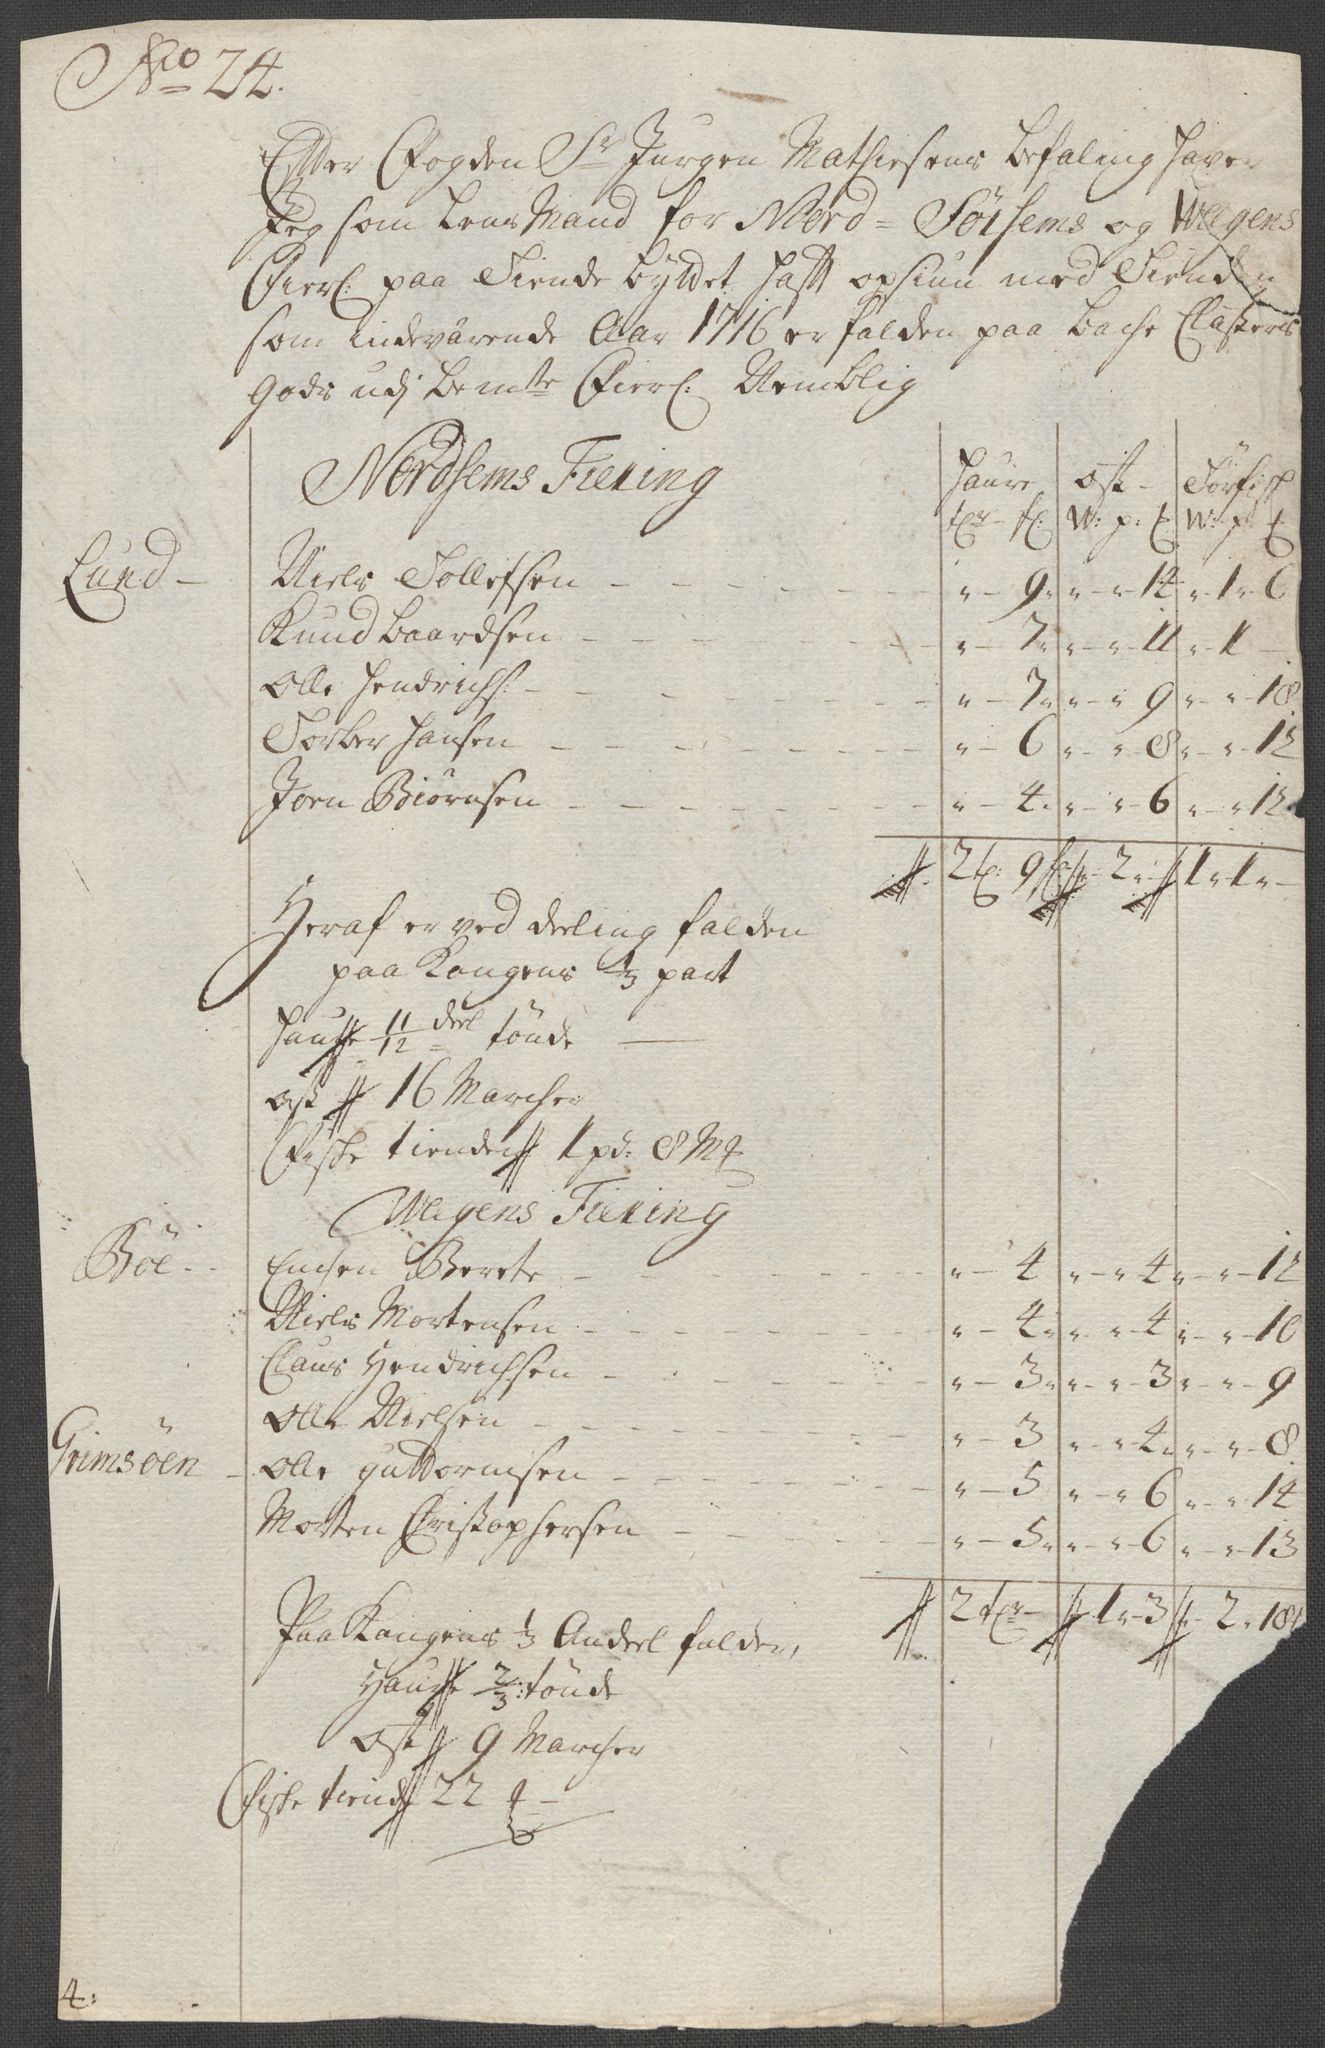 No 24.
Efter Fogden Sr Jurgen Mathiesens befaling haver
Jeg som Lens Mand for Nord = Sörsems og Wegens
Fierl: paa Tiende byttet haft opsiun med Tienden
som indeværende Aar 1716 er falden paa Bache Closters
Gods udj bemte Fierl: Nemblig
Nordsems Fiering
haure ost Törfisk
tdr- f: W: p: ℔ W: p: ℔
Lund - Niels Tollefsen - - - - - „ - 9 „ - „ - 14 „ - 1 „ 6
Knud baardsen - - - - - „ - 7 „ - „ - 11 „ - 1 -
Olle Hendrichs: - - - - - „ - 7 „ - „ 9 „ - „ - 18
Torber Hansen - - - - - „ - 6 „ - „ 8 „ - „ - 12
Joen Biörnsen - - - - - „ - 4 „ - „ - 6 „ - „ 12
2 t: 9 f: - 2 „ - 1 „ 1 „ -
Heraf er ved deeling falden
paa Kongens 1/3 part
haure 11/12 deel tönde
ost 16 Marcher
Fiske tienden 1 pd: 8 M℔
Wegens Fiering
Böe - Encken Berete - - - - - „ - 4 „ - „ - 4 „ - „ - 12
Niels Mortensen - - - - - „ - 4 „ - „ 4 „ - „ - 10
Claus Hendrichsen - - - - - „ - 3 „ - „ - 3 „ - „ - 9
Olle Nielsen - - - - - „ - 3 „ - „ 4 „ - „ - 8
Grimsöen - Olle guttormsen - - - - - „ - 5 „ - „ 6 „ - „ 14
Morten Christophersen - - - - - „ - 5 „ - „ - 6 „ - „ - 13
2 tdr - 1 „ 3 - 2 „ 18
Paa Kongens 1/3 Andeel falder,
Haure 2/3: tönde
ost 9 Marcher
Fiske tiend 22 ℔ -
4: